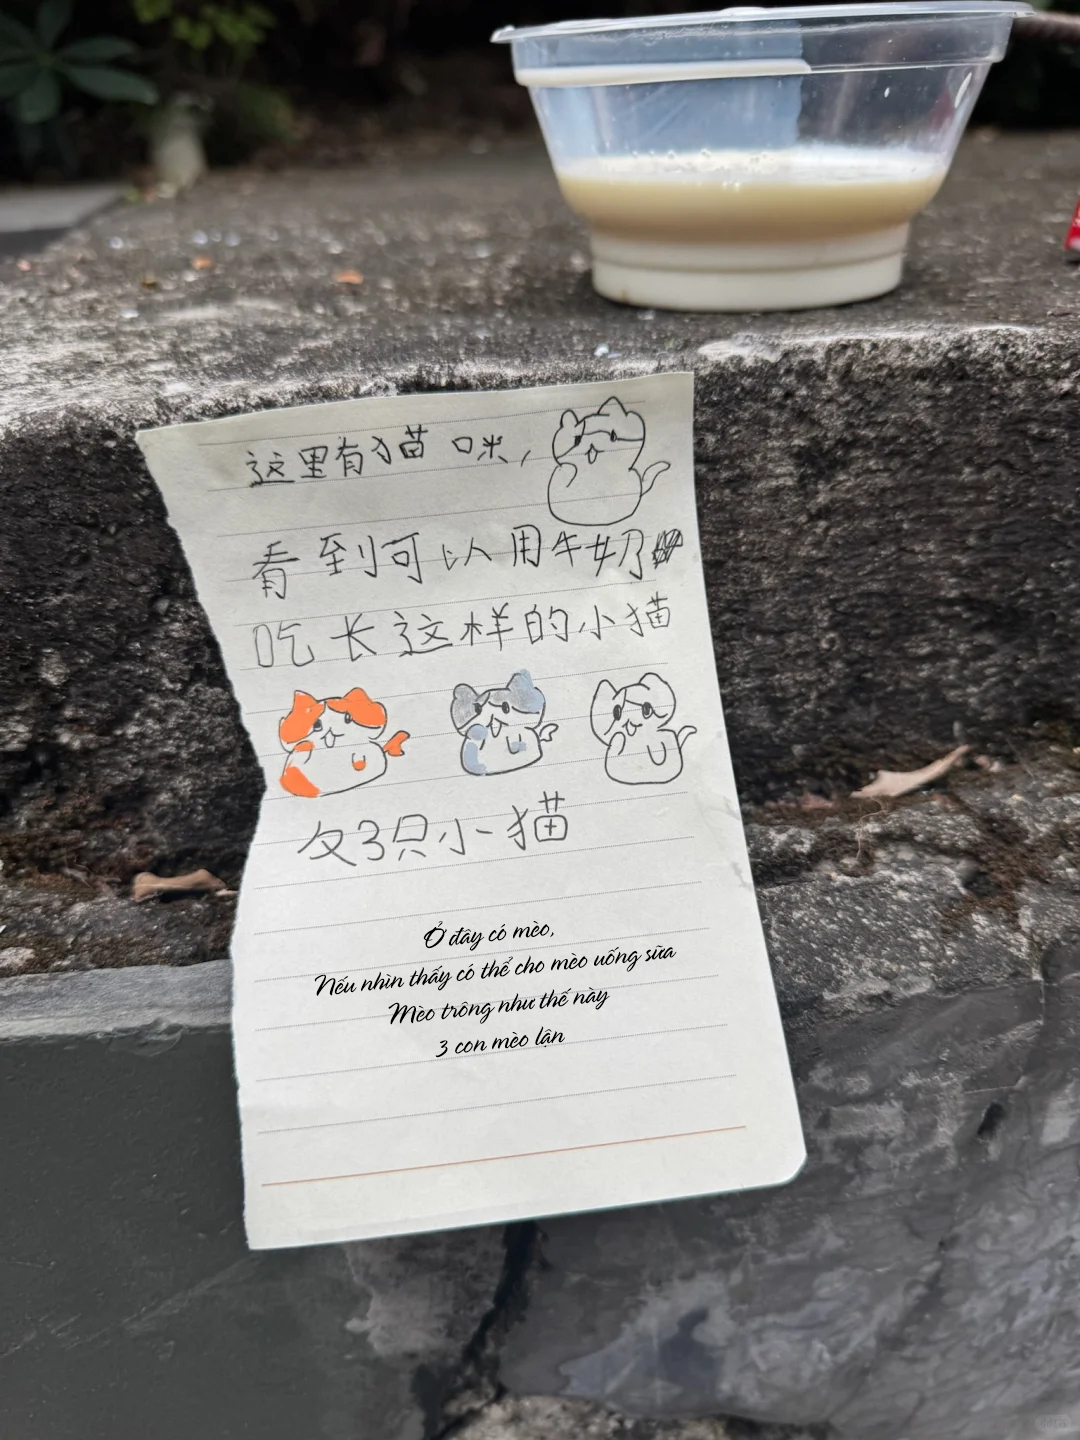 这里有猫咪，
看到可以用牛奶
吃长这样的小猫
3只小猫
Ở đây có mèo,
Nếu nhìn thấy có thể cho mèo uống sữa
Mèo trông như thế này
3 con mèo lận